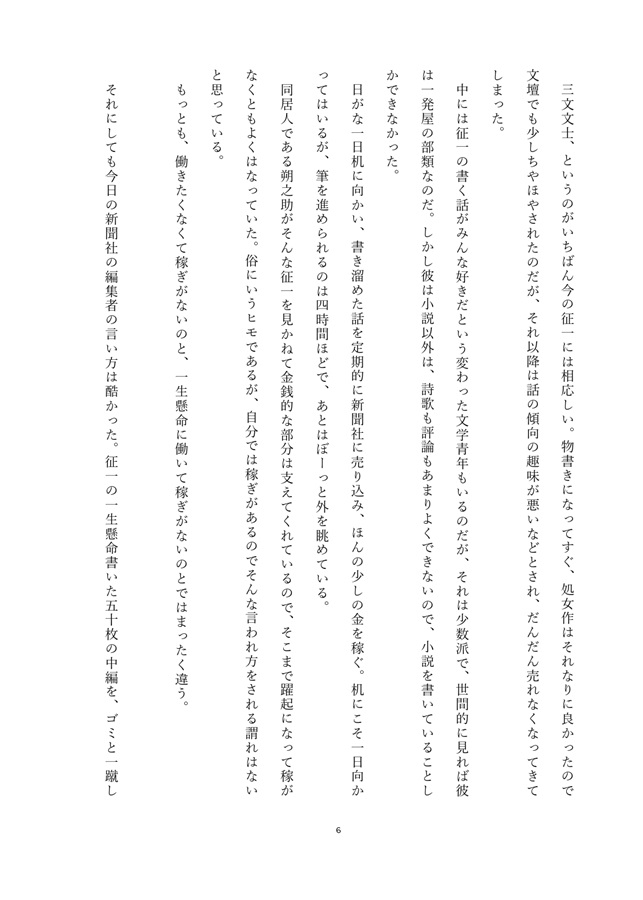 三文文士、というのがいちばん今の征一には相応しい。物書きになってすぐ、処女作はそれなりに良かったので
文壇でも少しちやほやされたのだが、それ以降は話の傾向の趣味が悪いなどとされ、だんだん売れなくなってきて
しまった。
中には征一の書く話がみんな好きだという変わった文学青年もいるのだが、それは少数派で、世間的に見れば彼
は一発屋の部類なのだ。しかし彼は小説以外は、詩歌も評論もあまりよくできないので、小説を書いていることし
かできなかった。
日がな一日机に向かい、書き溜めた話を定期的に新聞社に売り込み、ほんの少しの金を稼ぐ。机にこそ一日向か
ってはいるが、筆を進められるのは四時間ほどで、あとはぼーっと外を眺めている。
同居人である朔之助がそんな征一を見かねて金銭的な部分は支えてくれているので、そこまで躍起になって稼が
なくともよくはなっていた。俗にいうヒモであるが、自分では稼ぎがあるのでそんな言われ方をされる謂れはない
と思っている。
もっとも、働きたくなくて稼ぎがないのと、一生懸命に働いて稼ぎがないのとではまったく違う。
それにしても今日の新聞社の編集者の言い方は酷かった。征一の一生懸命書いた五十枚の中編を、ゴミと一蹴し
6